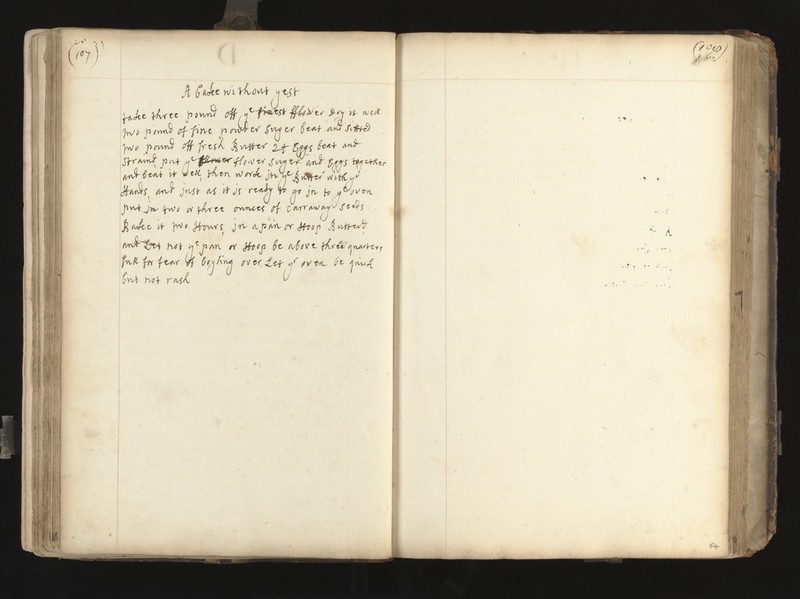 (107)
A Cake without yest
take three pound off ye finest fflower Dry it well
two pound of fine powder suger beat and sifted
two pound off fresh Butter 24 Eggs beat and
straind put ye flower flower suger and Eggs together
and beat it well then work in ye Butter with yr
Hands, and just as it is ready to go in to ye oven
put in two or three ounces of Carraway seeds
Bake it two Hours, in a pan or Hoop Butterd
and Let not ye pan or Hoop be above three quarters
full for fear of boyling over Let yr oven be quick
but not rash